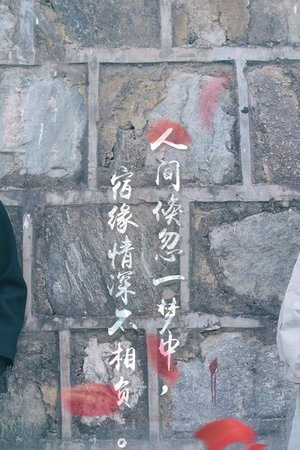 人间倏忽一梦中，
宿缘情深不相负。